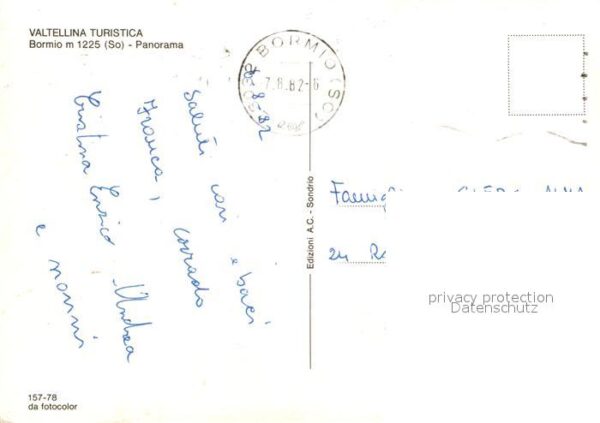 VALTELLINA TURISTICA
Bormio m 1225 (So) - Panorama
BORMIO (SO)
7.8.82-6
6-8-82
Saluti cari e baci
Franca, Corrado
Cristina Enrico Andrea
e nonni
Edizioni A.C. - Sondrio
privacy protection
Datenschutz
157-78
da fotocolor